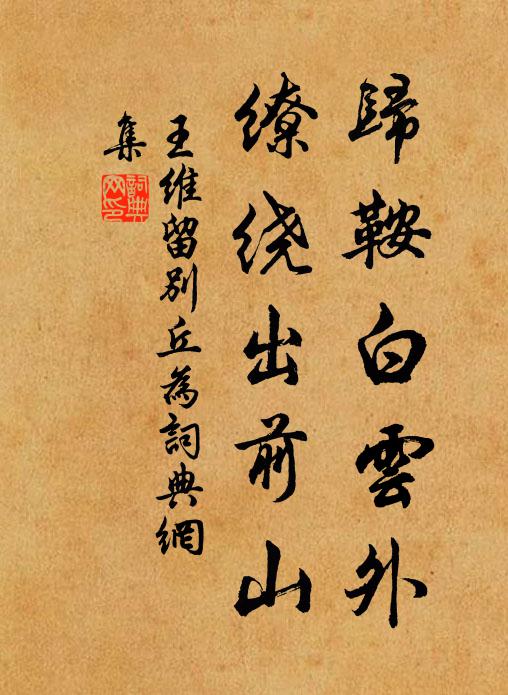 歸鞍白雲外
缭绕出前山
王維留别丘為詞典網
集
詞典
网印